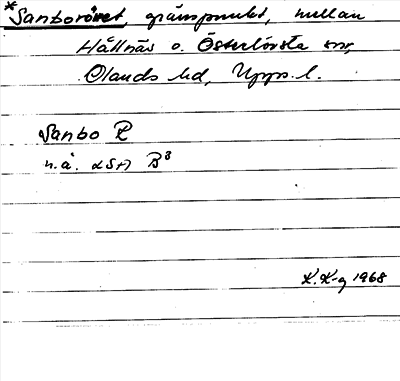 *Sanboröret, gränspunkt, mellan
Hållnäs o. Österlövsta snr,
Olands hd, Upps. l.
Sanbo R
n.å. LSA B³
K.K-g 1968